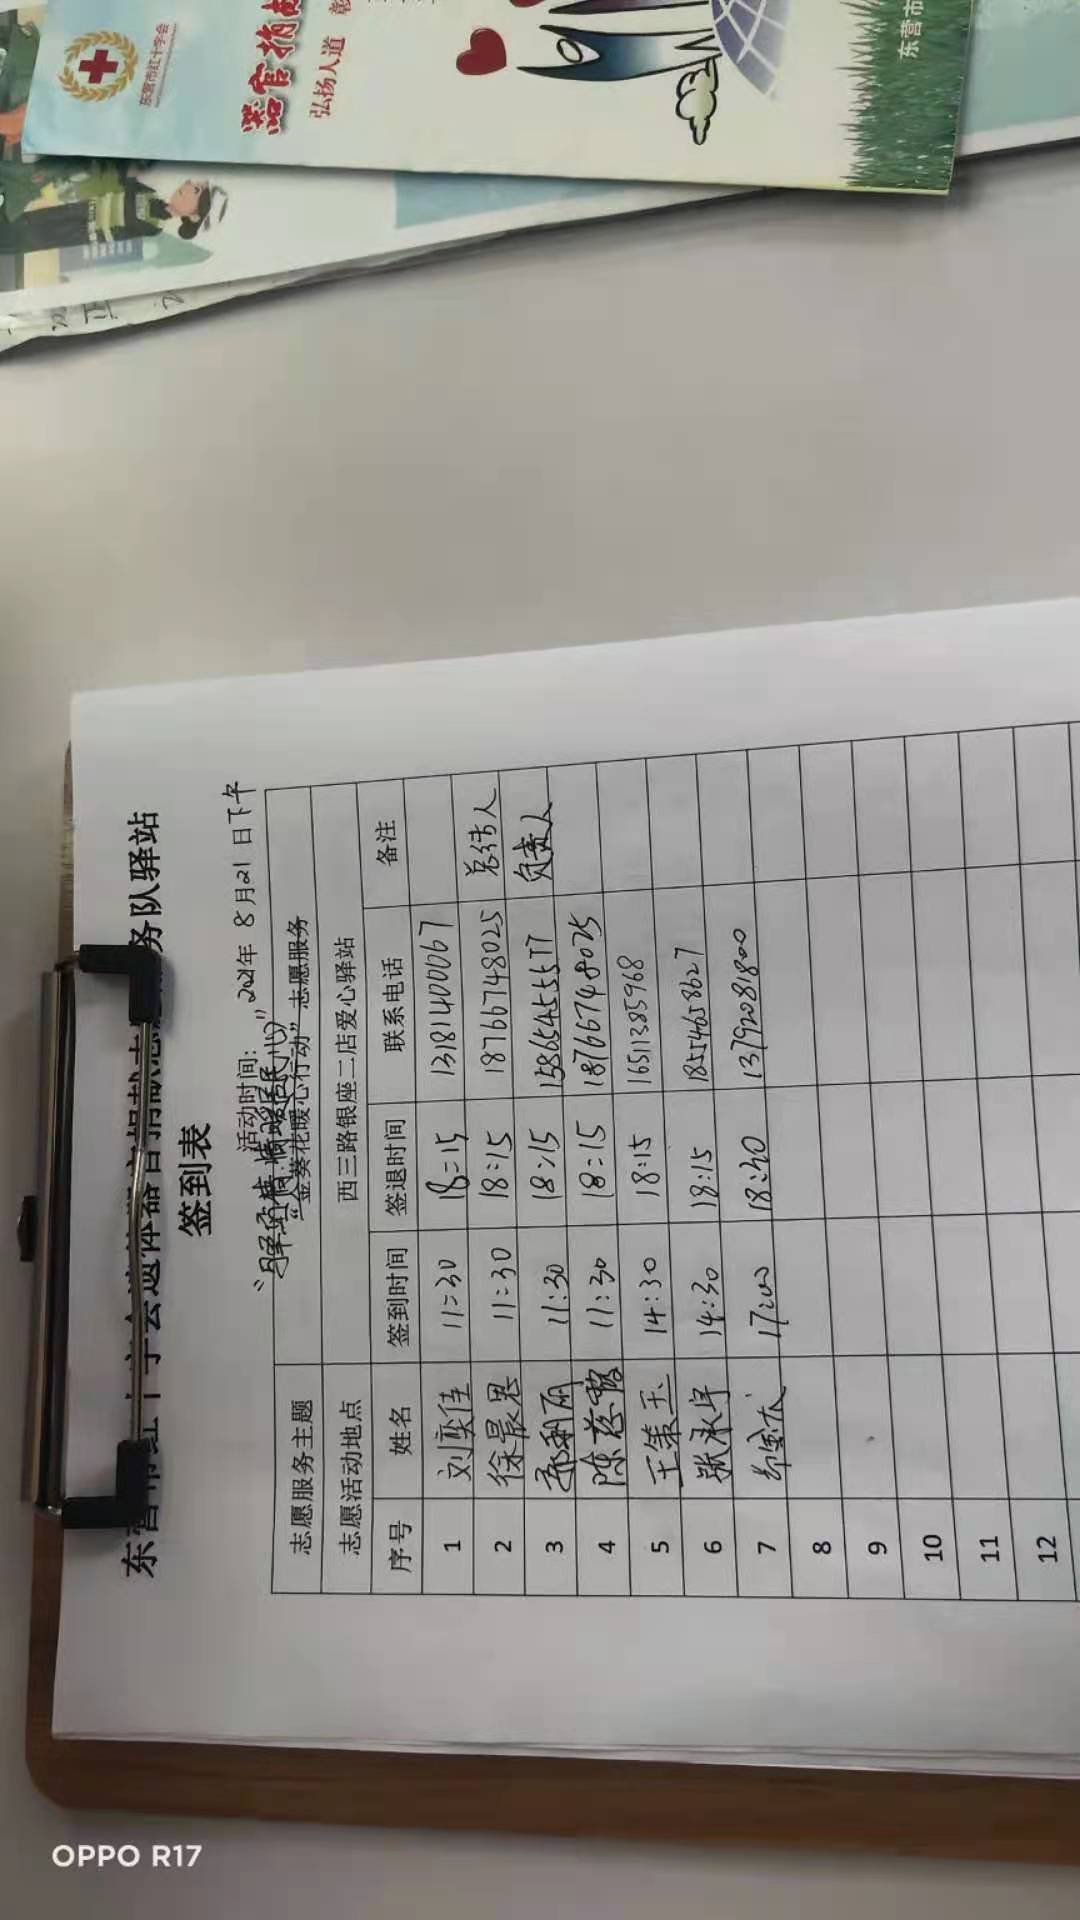 东营市红十字会
器官捐献
弘扬人道
东营市
东营市红十字会遗体器官捐献志愿服务队驿站
签到表
活动时间: 2021年 8月21日下午
志愿服务主题 "金葵花暖心行动" 志愿服务
志愿活动地点 西三路银座二店爱心驿站
序号 姓名 签到时间 签退时间 联系电话 备注
1 刘奕佳 11:30 18:15 13181400067
2 徐晨思 11:30 18:15 18766748025 总结人
3 11:30 18:15 负责人
4 陈 11:30 18:15 18766748025
5 王策玉 14:30 18:15 16511385968
6 张承宇 14:30 18:15 18554658627
7 17:00 18:30 13792081800
8
9
10
11
12
OPPO R17